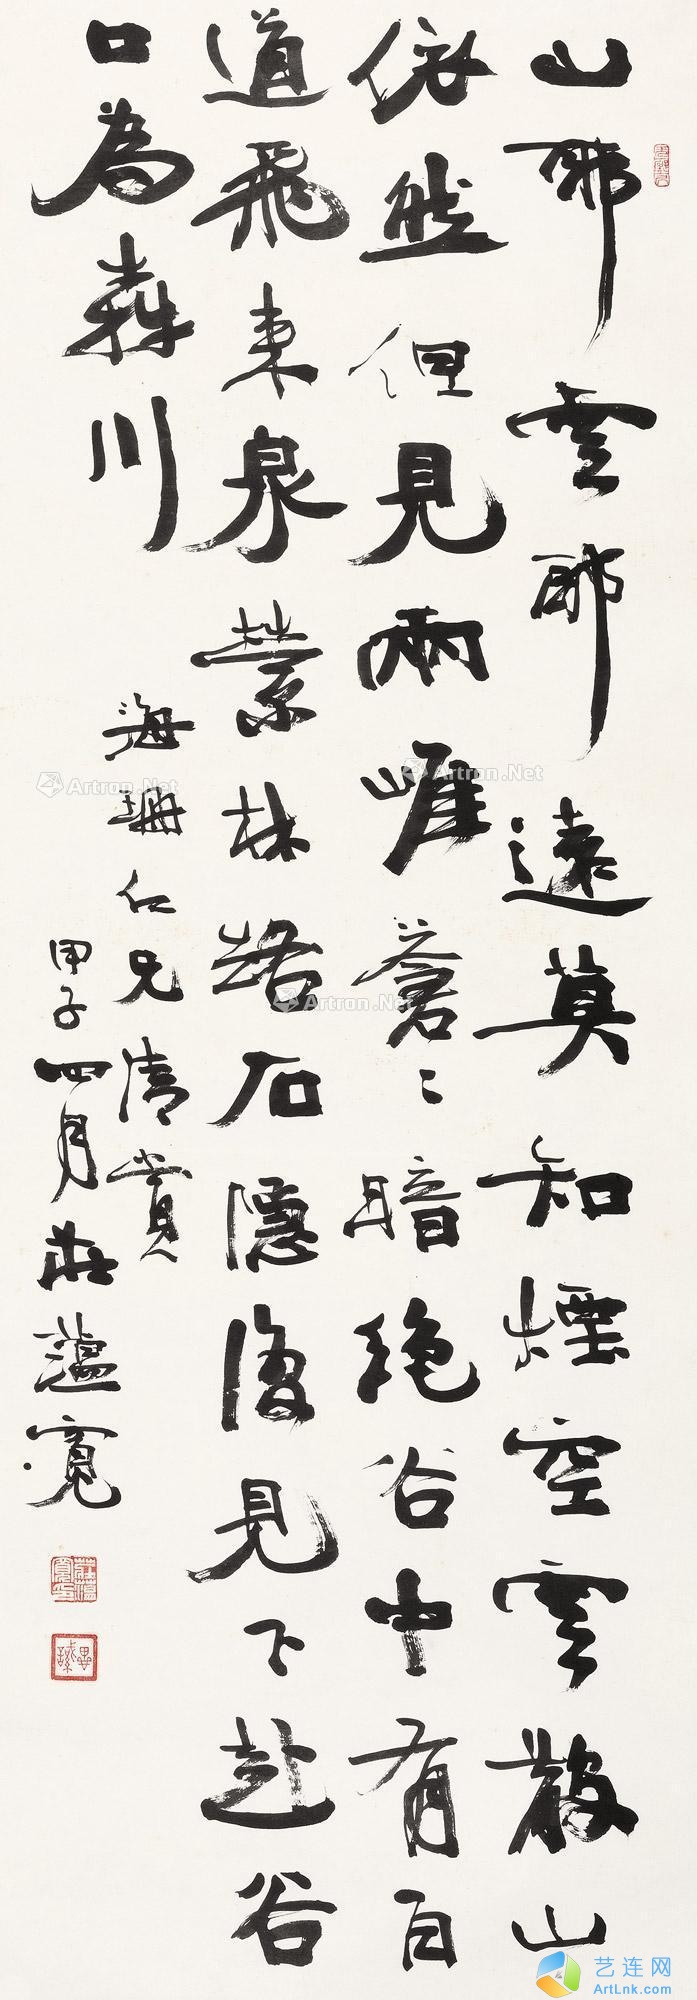 山耶雲耶遠莫知煙空雲散山
依然但見兩崖蒼〻暗絶谷中有百
道飛來泉縈林絡石隱復見下赴谷
口為犇川
海珊仁兄清賞
甲子四月莊蘊寬
莊蘊寬印
思緘
Artron.Net
Artron.Net
Artron.Net
艺连网
ArtLink.com